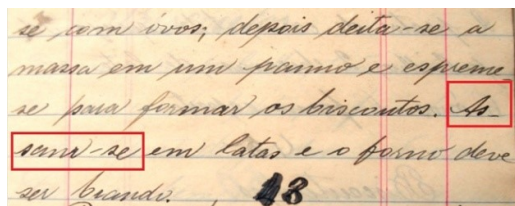 se com óvos; depois deita-se a
massa em um panno e espreme-
se para formar os biscoutos. As-
sam-se em latas e o forno deve
ser brando. 23